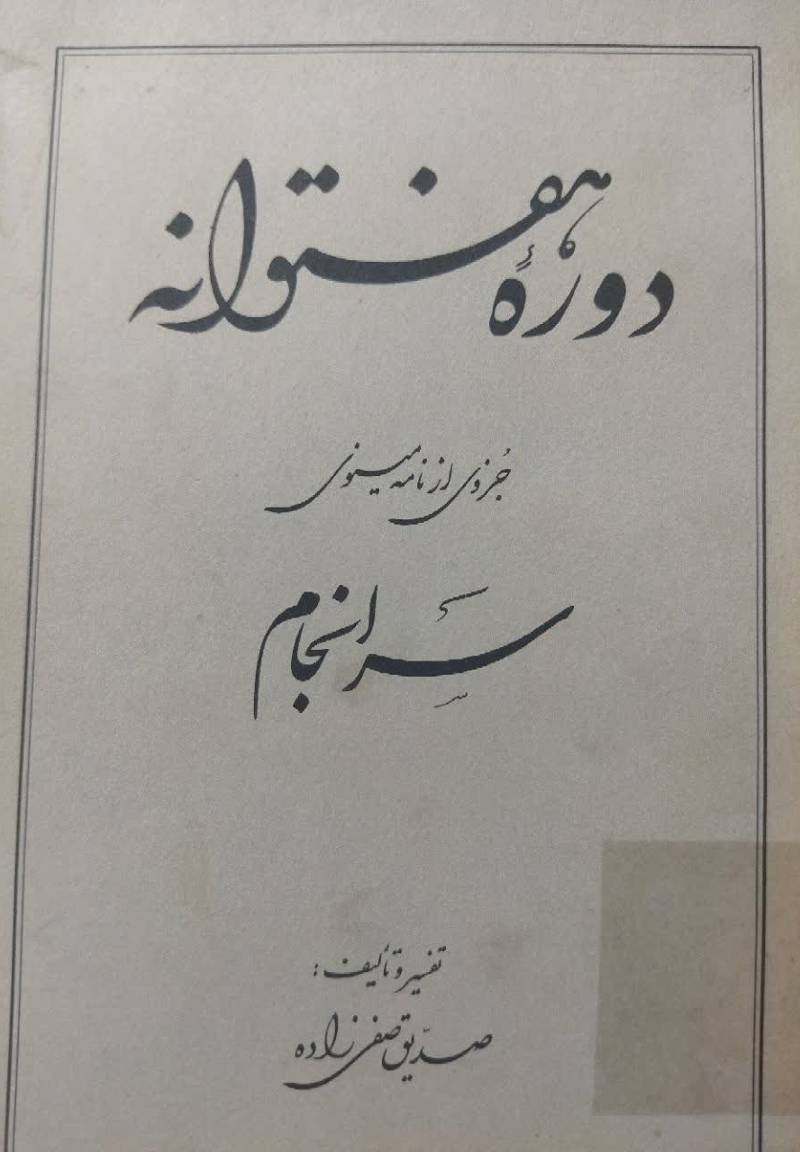 دورهٔ هفتوانه
جُزوی از نامه مینوی
سَرانجام
تفسیر و تألیف:
صدّیق صفی‌زاده